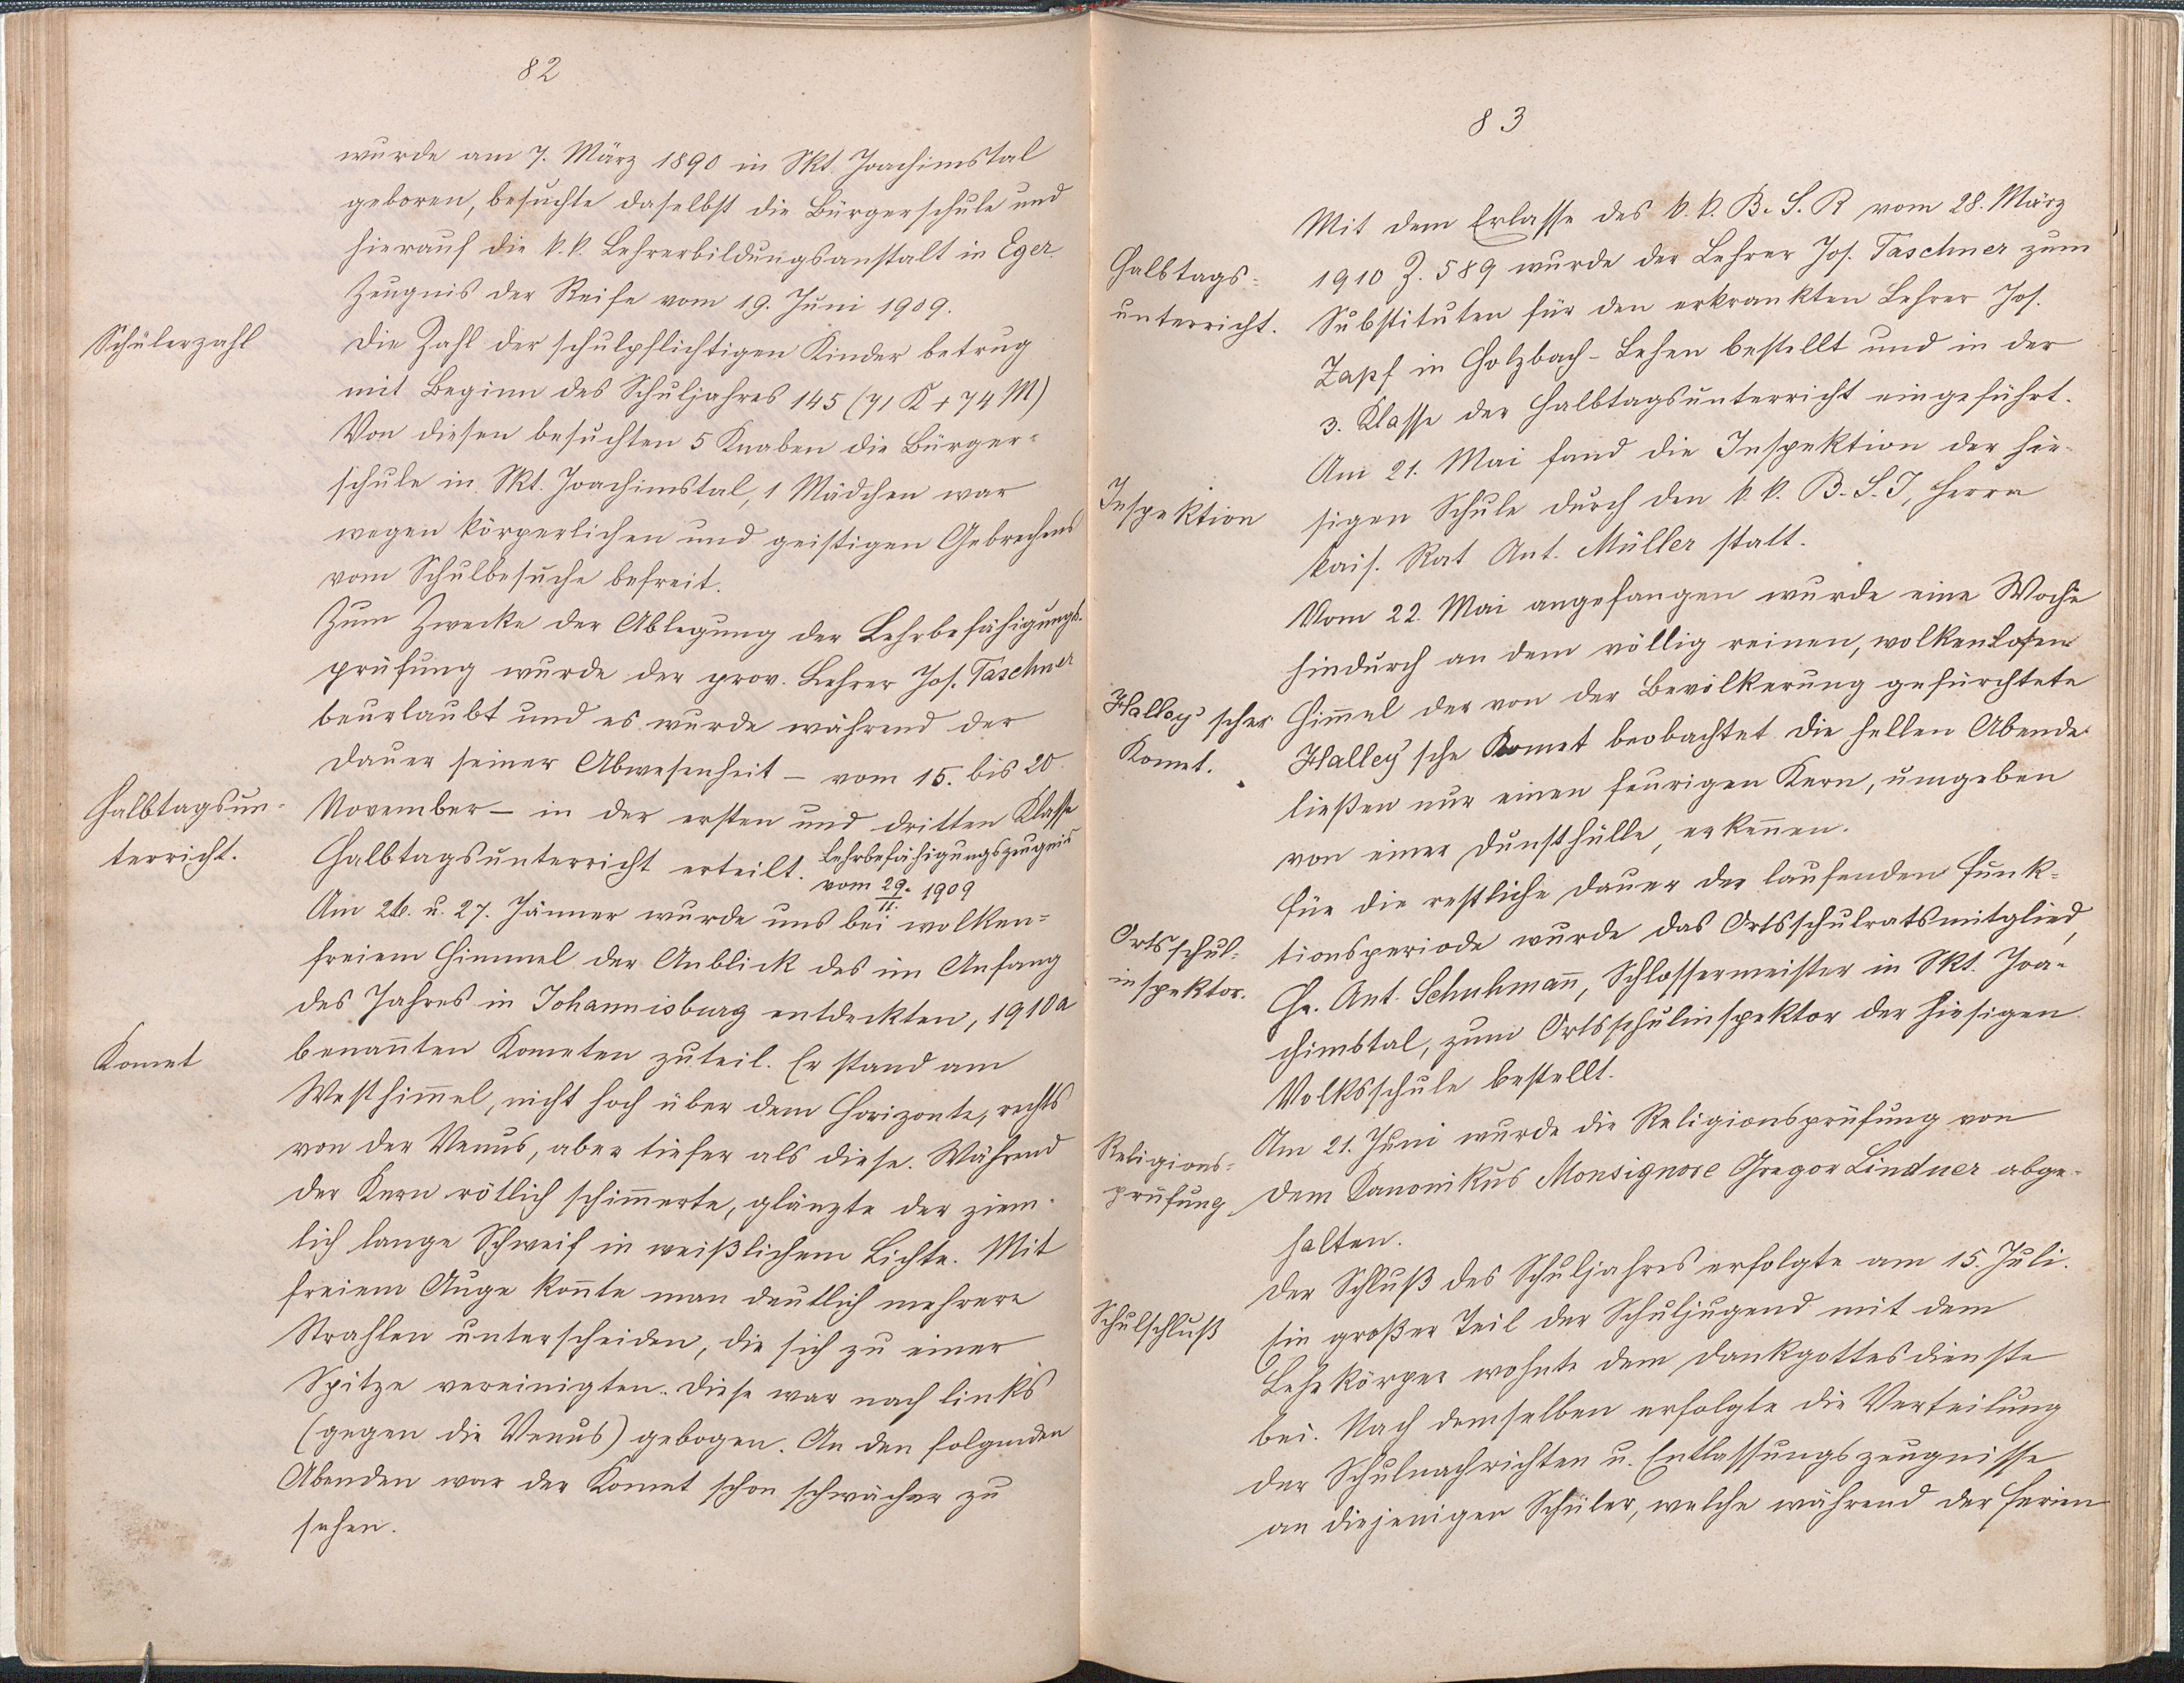 82
wurde am 7. März 1890 in Skt. Joachimstal
geboren, besuchte daselbst die Bürgerschule und
hierauf die k. k. Lehrerbildungsanstalt in Eger.
Zeugnis der Reife vom 19. Juni 1909.
Schülerzahl
Die Zahl der schulpflichtigen Kinder betrug
mit Beginn des Schuljahres 145 (71 K + 74 M)
Von diesen besuchten 5 Knaben die Bürger-
schule in Skt. Joachimstal, 1 Mädchen war
wegen körperlichen und geistigen Gebrechens
vom Schulbesuche befreit.
Zum Zwecke der Ablegung der Lehrbefähigungs-
prüfung wurde der prov. Lehrer Jos. Taschner
beurlaubt und es wurde während der
Dauer seiner Abwesenheit – vom 15. bis 20.
Halbtagsun-
terricht.
November – in der ersten und dritten Klasse
Halbtagsunterricht erteilt. Lehrbefähigungszeugnis
vom 29./11. 1909
Am 26. u. 27. Jänner wurde uns bei wolken-
freiem Himmel der Anblick des im Anfang
des Jahres in Johannisburg entdeckten, 1910a
Komet
benan̄ten Kometen zuteil. Er stand am
Westhim̄el, nicht hoch über dem Horizonte, rechts
von der Venus, aber tiefer als diese. Während
der Kern rötlich schim̄erte, glänzte der ziem-
lich lange Schweif in weißlichem Lichte. Mit
freiem Auge kon̄te man deutlich mehrere
Strahlen unterscheiden, die sich zu einer
Spitze vereinigten. Diese war nach links
(gegen die Venus) gebogen. An den folgenden
Abenden war der Komet schon schwächer zu
sehen.
83
Mit dem Erlasse des k. k. B. S. R vom 28. März
Halbtags-
unterricht.
1910 Z. 589 wurde der Lehrer Jos. Taschner zum
Substituten für den erkrankten Lehrer Jos.
Zapf in Holzbach-Lehen bestellt und in der
3. Klasse der Halbtagsunterricht eingeführt.
Am 21. Mai fand die Inspektion der hie-
Inspektion
sigen Schule durch den k. k. B. S. I, Herrn
kais. Rat Ant. Müller statt.
Vom 22. Mai angefangen wurde eine Woche
hindurch an dem völlig reinen, wolkenlosen
Halley'scher
Komet.
Him̄el der von der Bevölkerung gefürchtete
Halley'sche Komet beobachtet. Die hellen Abende
ließen nur einen feurigen Kern, umgeben
von einer Dunsthülle, erken̄en.
Für die restliche Dauer der laufenden Funk-
Ortsschul-
inspektor.
tionsperiode wurde das Ortsschulratsmitglied,
Hr. Ant. Schuhman̄, Schlossermeister in Skt. Joa-
chimstal, zum Ortsschulinspektor der hiesigen
Volksschule bestellt.
Religions-
prüfung
Am 21. Juni wurde die Religionsprüfung von
dem Kanonikus Monsignore Gregor Lindner abge-
halten.
Der Schluß des Schuljahres erfolgte am 15. Juli.
Schulschluß
Ein großer Teil der Schuljugend mit dem
Lehrkörper wohnte dem Dankgottesdienste
bei. Nach demselben erfolgte die Verteilung
der Schulnachrichten u. Entlassungszeugnisse
an diejenigen Schüler, welche während der Ferien